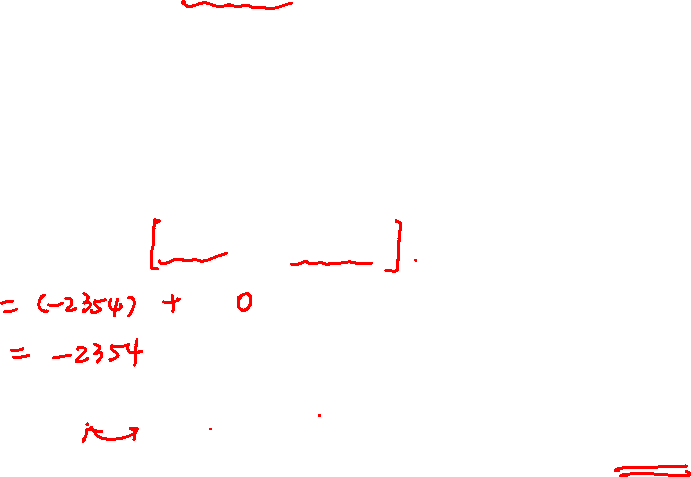 = (-2354) + 0
= -2354